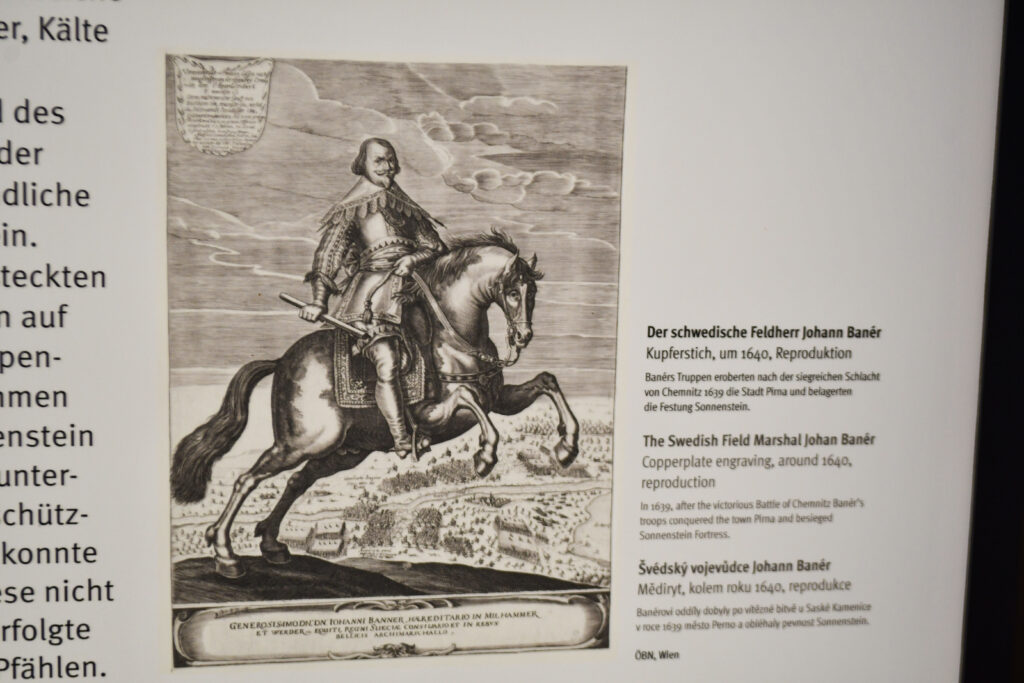 er, Kälte
des
der
dliche
in.
teckten
n auf
pen-
mmen
enstein
unter-
chütz-
konnte
ese nicht
rfolgte
Pfählen.
GENEROSISSIMO DN. DN IOHANNI BANNER, HÆREDITARIO IN MILHAMMER
ET WERDER, EQUITI, REGNI SUECIÆ CONSILIARIO ET IN REBUS
BELLICIS ARCHIMARSCHALLO.
Der schwedische Feldherr Johann Banér
Kupferstich, um 1640, Reproduktion
Banérs Truppen eroberten nach der siegreichen Schlacht
von Chemnitz 1639 die Stadt Pirna und belagerten
die Festung Sonnenstein.
The Swedish Field Marshal Johan Banér
Copperplate engraving, around 1640,
reproduction
In 1639, after the victorious Battle of Chemnitz Banér's
troops conquered the town Pirna and besieged
Sonnenstein Fortress.
Švédský vojevůdce Johann Banér
Mědiryt, kolem roku 1640, reprodukce
Banérovi oddíly dobyly po vítězné bitvě u Saské Kamenice
v roce 1639 město Perno a obléhaly pevnost Sonnenstein.
ÖBN, Wien